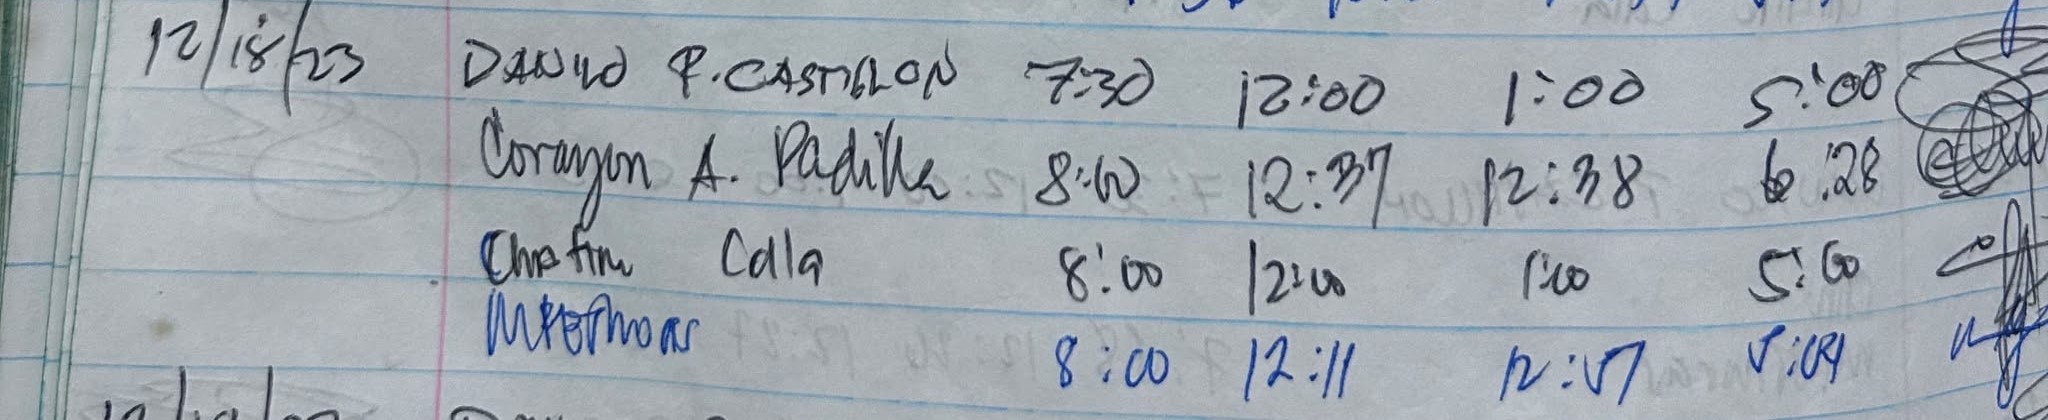 12/18/23 DANILO P. CASTILLON 7:30 12:00 1:00 5:00
Corazon A. Padilla 8:00 12:37 12:38 6:28
Calla 8:00 12:00 1:00 5:00
8:00 12:11 12:57 5:04